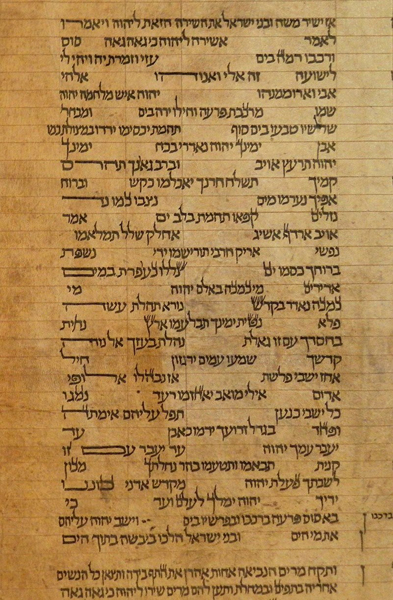 אז ישיר משה ובני ישראל את השירה הזאת ליהוה ויאמרו
לאמר אשירה ליהוה כי גאה גאה סוס
ורכבו רמה בים עזי וזמרת יה ויהי לי
לישועה זה אלי ואנוהו אלהי
אבי וארממנהו יהוה איש מלחמה יהוה
שמו מרכבת פרעה וחילו ירה בים ומבחר
שלשיו טבעו בים סוף תהמת יכסימו ירדו במצולת כמו
אבן ימינך יהוה נאדרי בכח ימינך
יהוה תרעץ אויב וברב גאנך תהרס
קמיך תשלח חרנך יאכלמו כקש וברוח
אפיך נערמו מים נצבו כמו נד
נזלים קפאו תהמת בלב ים אמר
אויב ארדף אשיג אחלק שלל תמלאמו
נפשי אריק חרבי תורישמו ידי נשפת
ברוחך כסמו ים צללו כעפרת במים
אדירים מי כמכה באלם יהוה מי
כמכה נאדר בקדש נורא תהלת עשה
פלא נטית ימינך תבלעמו ארץ נחית
בחסדך עם זו גאלת נהלת בעזך אל נוה
קדשך שמעו עמים ירגזון חיל
אחז ישבי פלשת אז נבהלו אלופי
אדום אילי מואב יאחזמו רעד נמגו
כל ישבי כנען תפל עליהם אימתה
ופחד בגדל זרועך ידמו כאבן עד
יעבר עמך יהוה עד יעבר עם זו
קנית תבאמו ותטעמו בהר נחלתך מכון
לשבתך פעלת יהוה מקדש אדני כוננו
ידיך יהוה ימלך לעלם ועד כי
בא סוס פרעה ברכבו ובפרשיו בים וישב יהוה עלהם
את מי הים ובני ישראל הלכו ביבשה בתוך הים
ותקח מרים הנביאה אחות אהרן את התף בידה ותצאן כל הנשים
אחריה בתפים ובמחלת ותען להם מרים שירו ליהוה כי גאה גאה